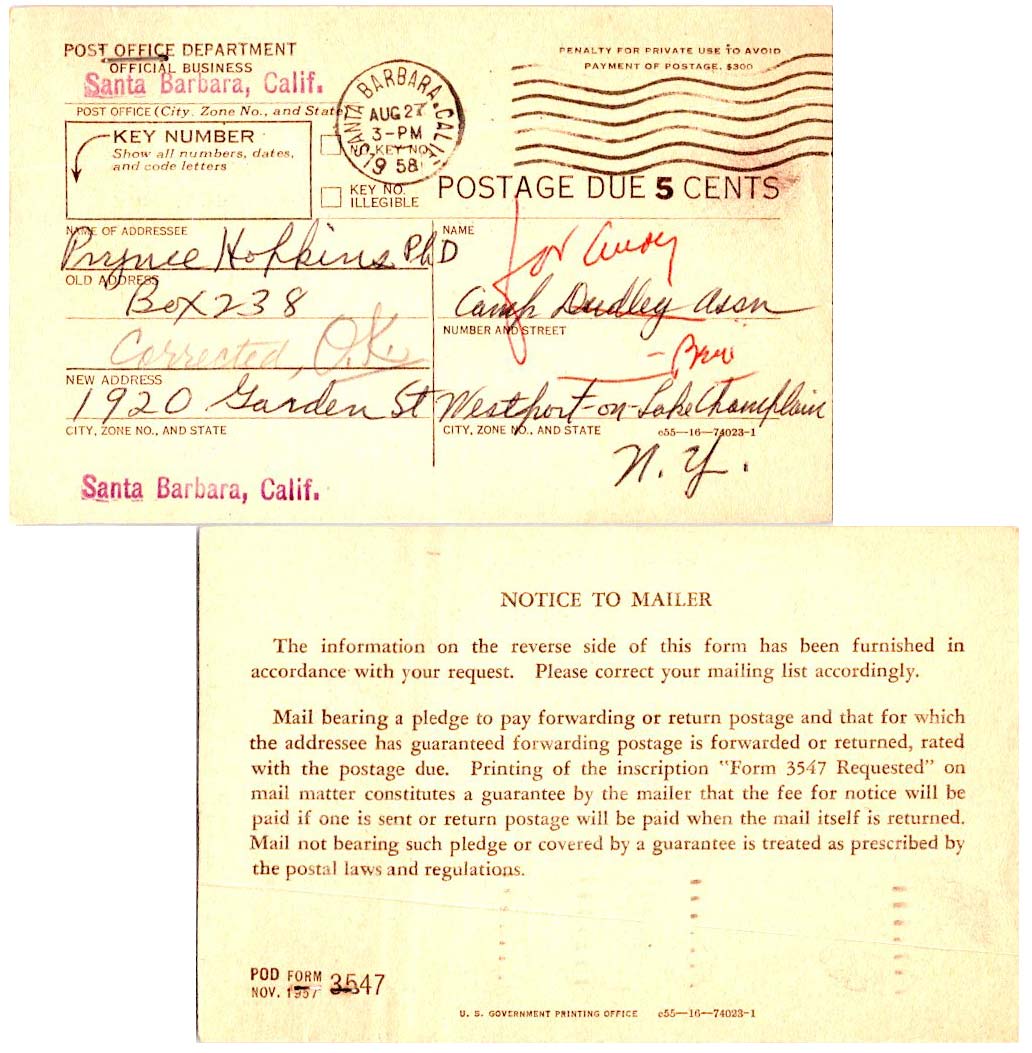 POST OFFICE DEPARTMENT
OFFICIAL BUSINESS
Santa Barbara, Calif.
POST OFFICE (City, Zone No., and State)
PENALTY FOR PRIVATE USE TO AVOID
PAYMENT OF POSTAGE, $300
SANTA BARBARA, CALIF.
AUG 27
3-PM
1958
KEY NUMBER
Show all numbers, dates,
and code letters
NO KEY NO.
KEY NO.
ILLEGIBLE
POSTAGE DUE 5 CENTS
NAME OF ADDRESSEE
Prynce Hopkins PhD
OLD ADDRESS
Box 238
Corrected, O.K.
NEW ADDRESS
1920 Garden St
CITY, ZONE NO., AND STATE
Santa Barbara, Calif.
NAME
for
Camp Dudley Assn
NUMBER AND STREET
Westport-on-Lake Champlain
CITY, ZONE NO., AND STATE
c55—16—74023-1
N. Y.
NOTICE TO MAILER
The information on the reverse side of this form has been furnished in
accordance with your request. Please correct your mailing list accordingly.
Mail bearing a pledge to pay forwarding or return postage and that for which
the addressee has guaranteed forwarding postage is forwarded or returned, rated
with the postage due. Printing of the inscription "Form 3547 Requested" on
mail matter constitutes a guarantee by the mailer that the fee for notice will be
paid if one is sent or return postage will be paid when the mail itself is returned.
Mail not bearing such pledge or covered by a guarantee is treated as prescribed by
the postal laws and regulations.
POD FORM 3547
NOV. 1957
U. S. GOVERNMENT PRINTING OFFICE c55—16—74023-1